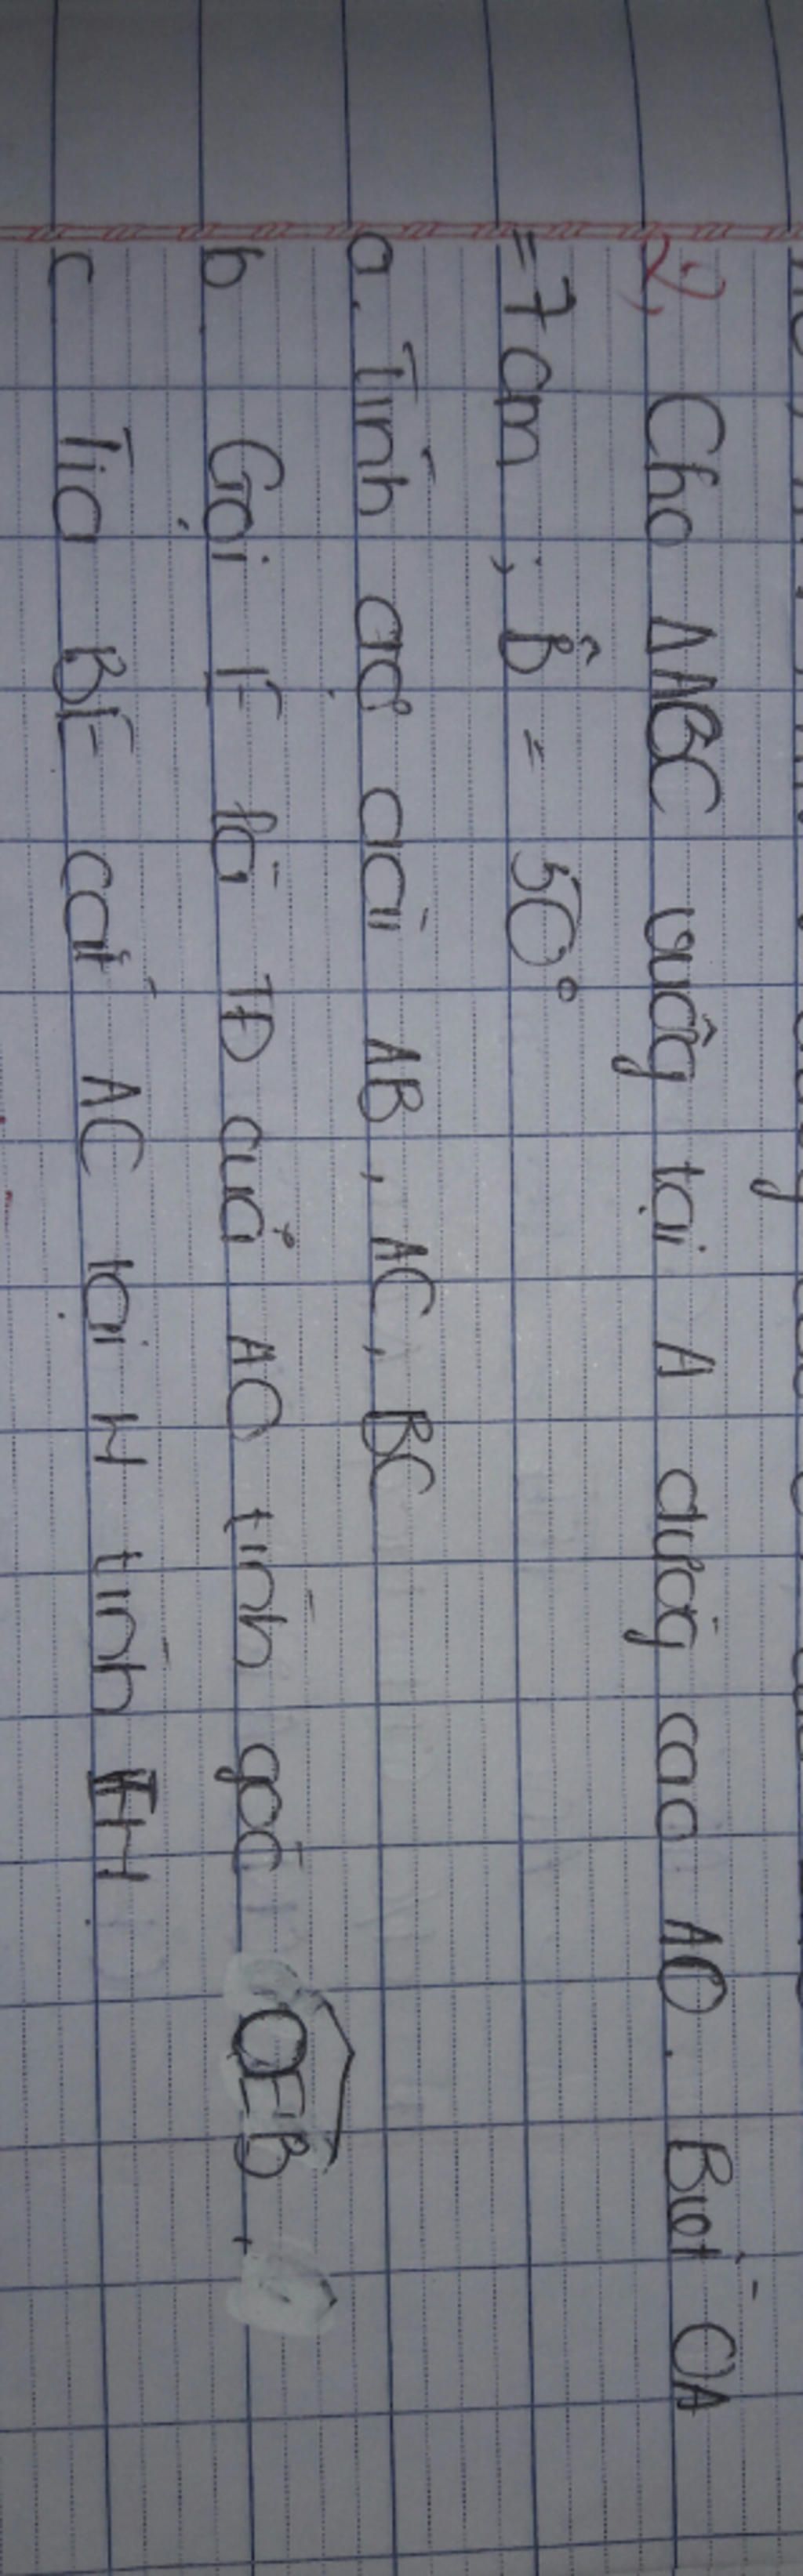 2, Cho ΔABC vuôg tại A đườg cao AO. Biết OA
= 7 cm, B̂ = 50°
a. Tính độ dài AB, AC, BC
b. Gọi E là TĐ của AO tính góc OEB.
c Tia BE cắt AC tại H tính EH.